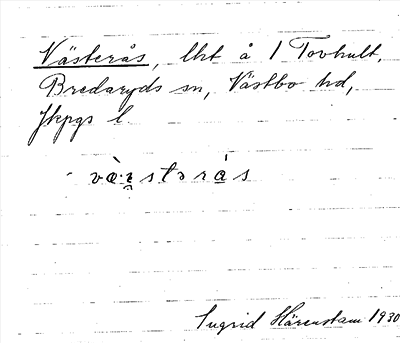 Västerås, lht å 1 Tovhult,
Bredaryds sn, Västbo hd,
Jkpgs l.
væ̀ːstərás
Ingrid Härenstam 1930